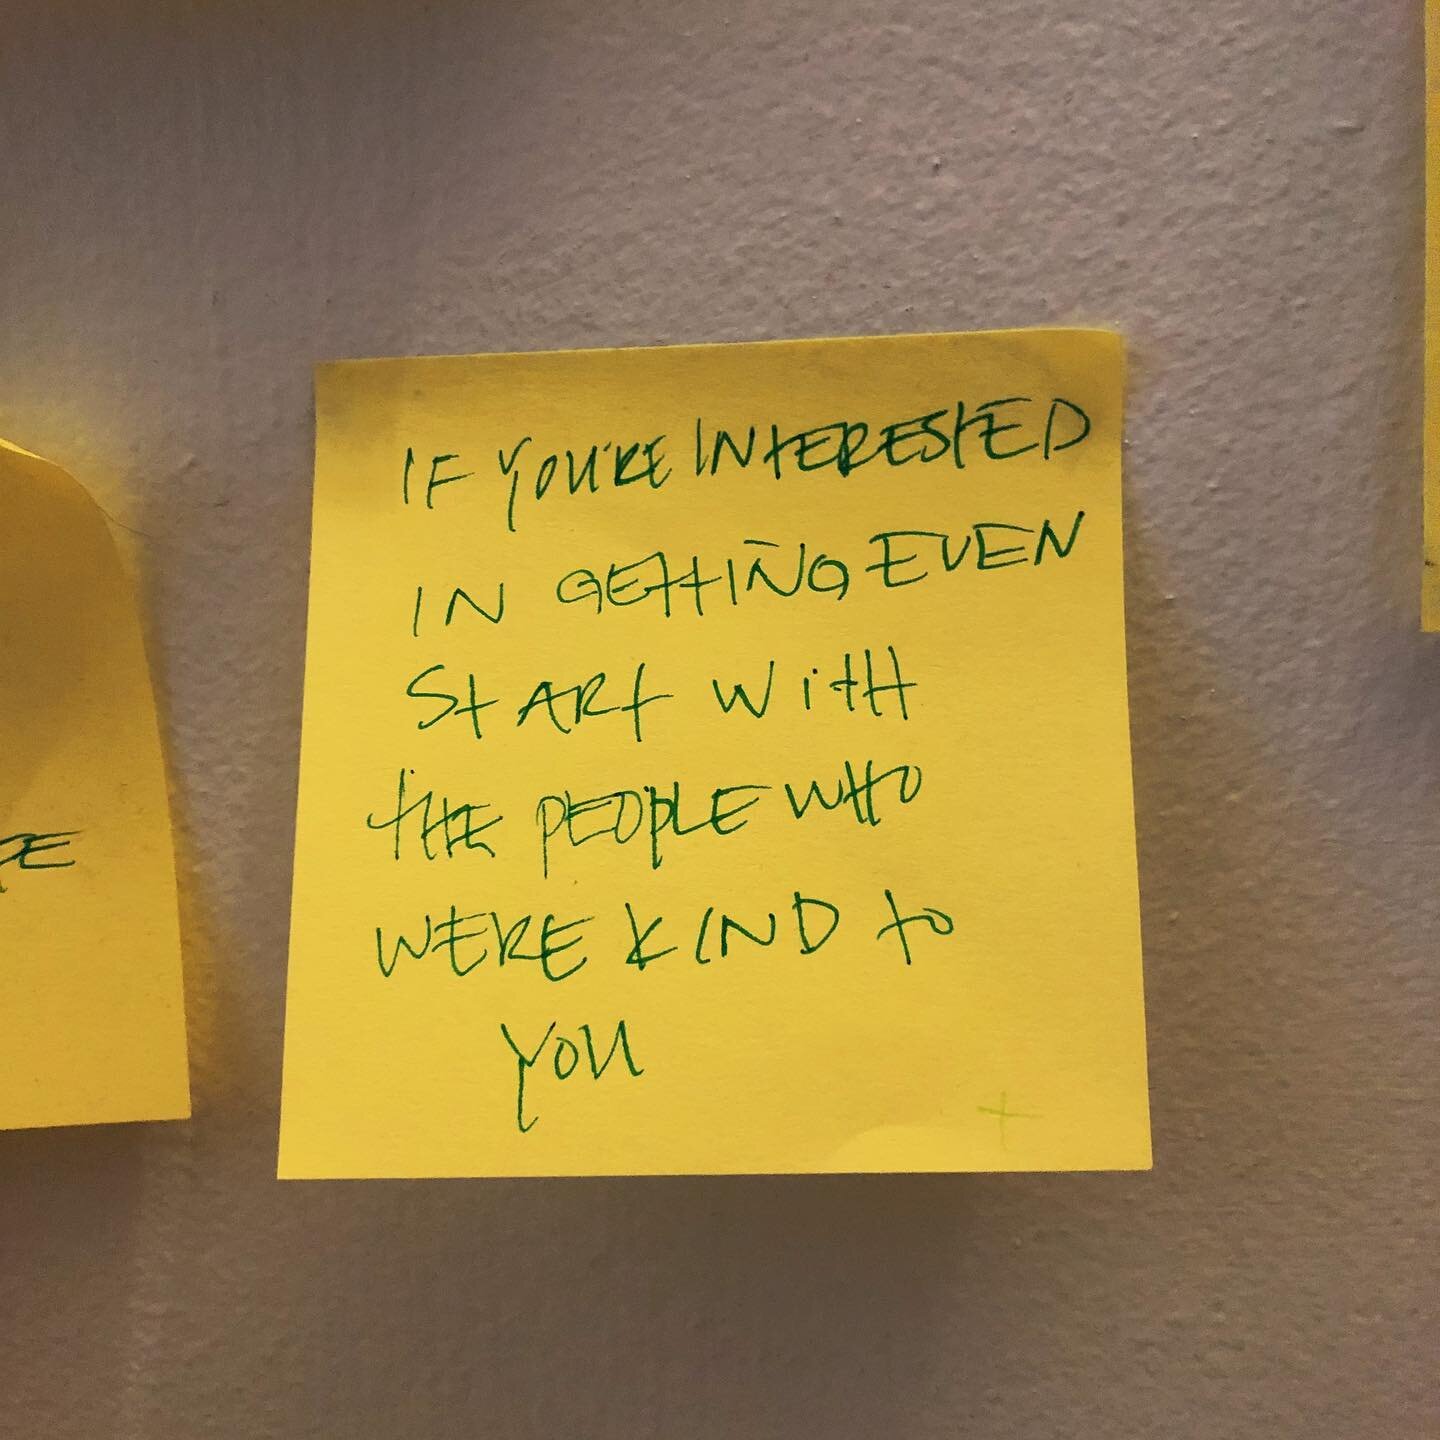 IF YOU'RE INTERESTED
IN GETTING EVEN
START WITH
THE PEOPLE WHO
WERE KIND TO
YOU